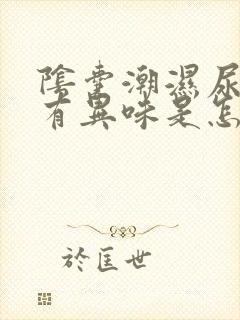 陰囊潮濕尿
有異味是怎
於匡世